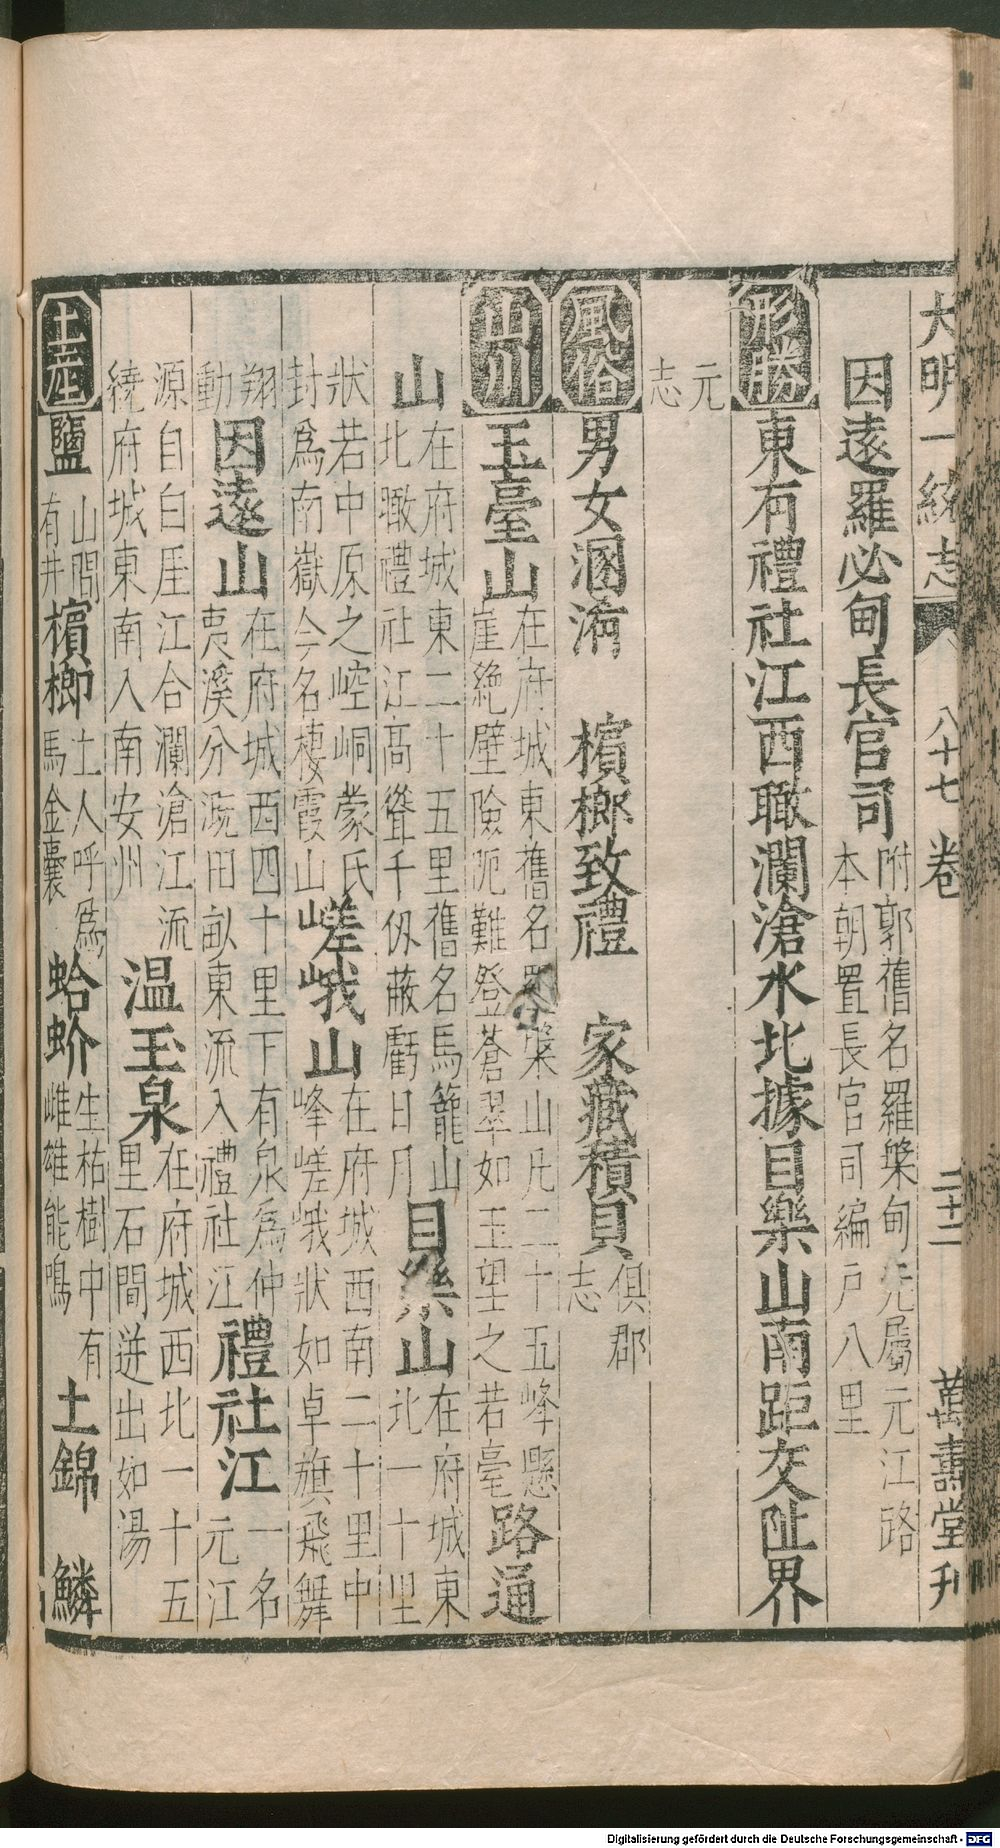 大明一統志 八十七卷 二十二 萬壽堂刊
因遠羅必甸長官司 附郭舊名羅槃甸元屬元江路
本朝置長官司編戶八里
形勝 東有禮社江西瞰瀾滄水北據目樂山南距交阯界
元
志
風俗 男女溷浴 檳榔致禮 家藏積貝 俱郡
志
山川 玉臺山 在府城東舊名羅槃山凡二十五峰懸
崖絶壁險阨難登蒼翠如玉望之若臺 路通
山 在府城東二十五里舊名馬籠山
北瞰禮社江高聳千仭蔽虧日月 目樂山 在府城東
北一十里
狀若中原之崆峒蒙氏
封爲南嶽今名棲霞山 嵯峨山 在府城西南二十里中
峰嵯峨狀如卓旗飛舞
翔
動 因遠山 在府城西四十里下有泉爲仲
夷溪分溉田畝東流入禮社江 禮社江 一名
元江
源自白厓江合瀾滄江流
繞府城東南入南安州 温玉泉 在府城西北一十五
里石間迸出如湯
土產 鹽 山間
有井 檳榔 土人呼爲
馬金囊 蛤蚧 生枯樹中有
雌雄能鳴 土錦 鱗
Digitalisierung gefördert durch die Deutsche Forschungsgemeinschaft - DFG